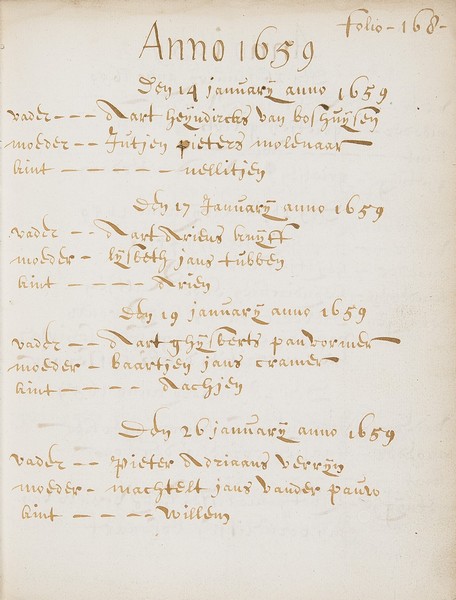 folio - 168 -
Anno 1659
Den 14 januarÿ anno 1659
vader - - - Aart heÿndircks van boshuÿsen
moeder - - Jutjen pieters molenaar
kint - - - - - - nellitjen
Den 17 Januarÿ anno 1659
vader - - Aart Ariens kuÿff
moeder - lÿsbeth jans tubben
kint - - - - - Arien
den 19 januarÿ anno 1659
vader - - Aart ghÿsberts panvormer
moeder - baartjen jans cramer
kint - - - - - Aachjen
Den 26 januarÿ anno 1659
vader - - pieter Adriaans verrÿn
moeder - machtelt jans vander pauw
kint - - - - - willem